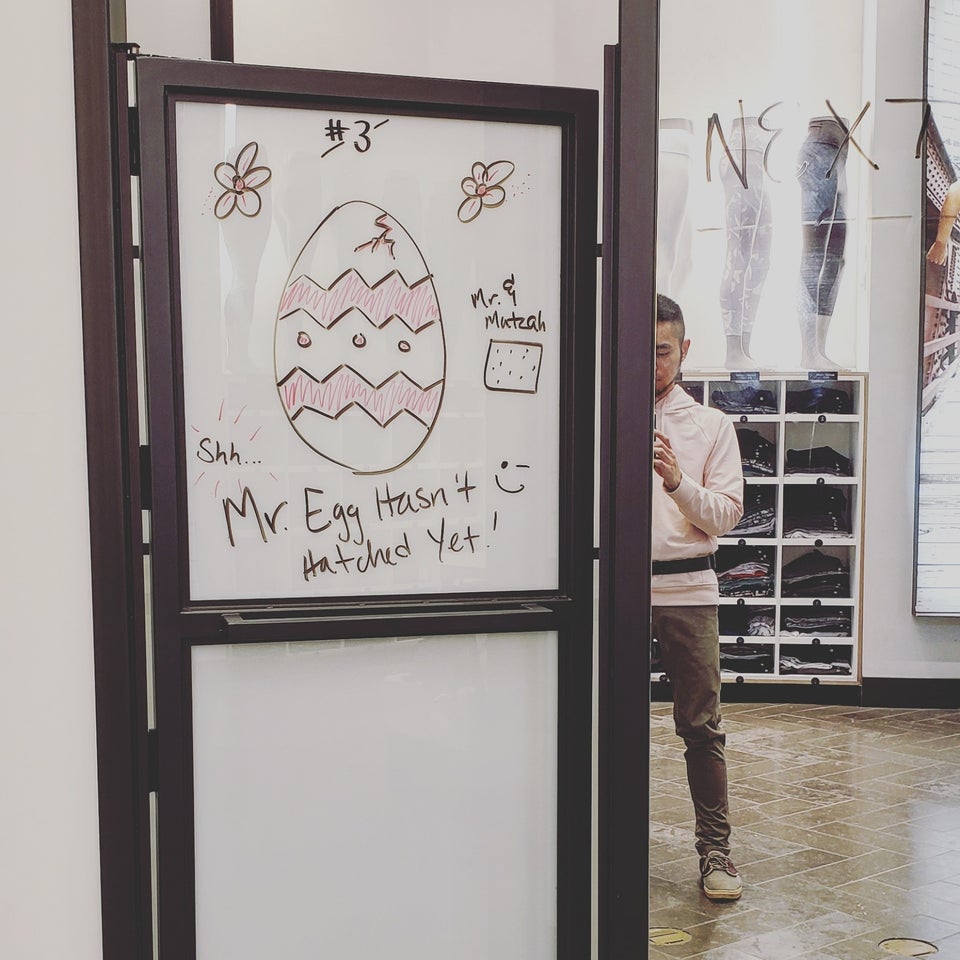 #3
NEXT
Mr. &
Matzah
Shh...
Mr. Egg Hasn't
Hatched Yet!